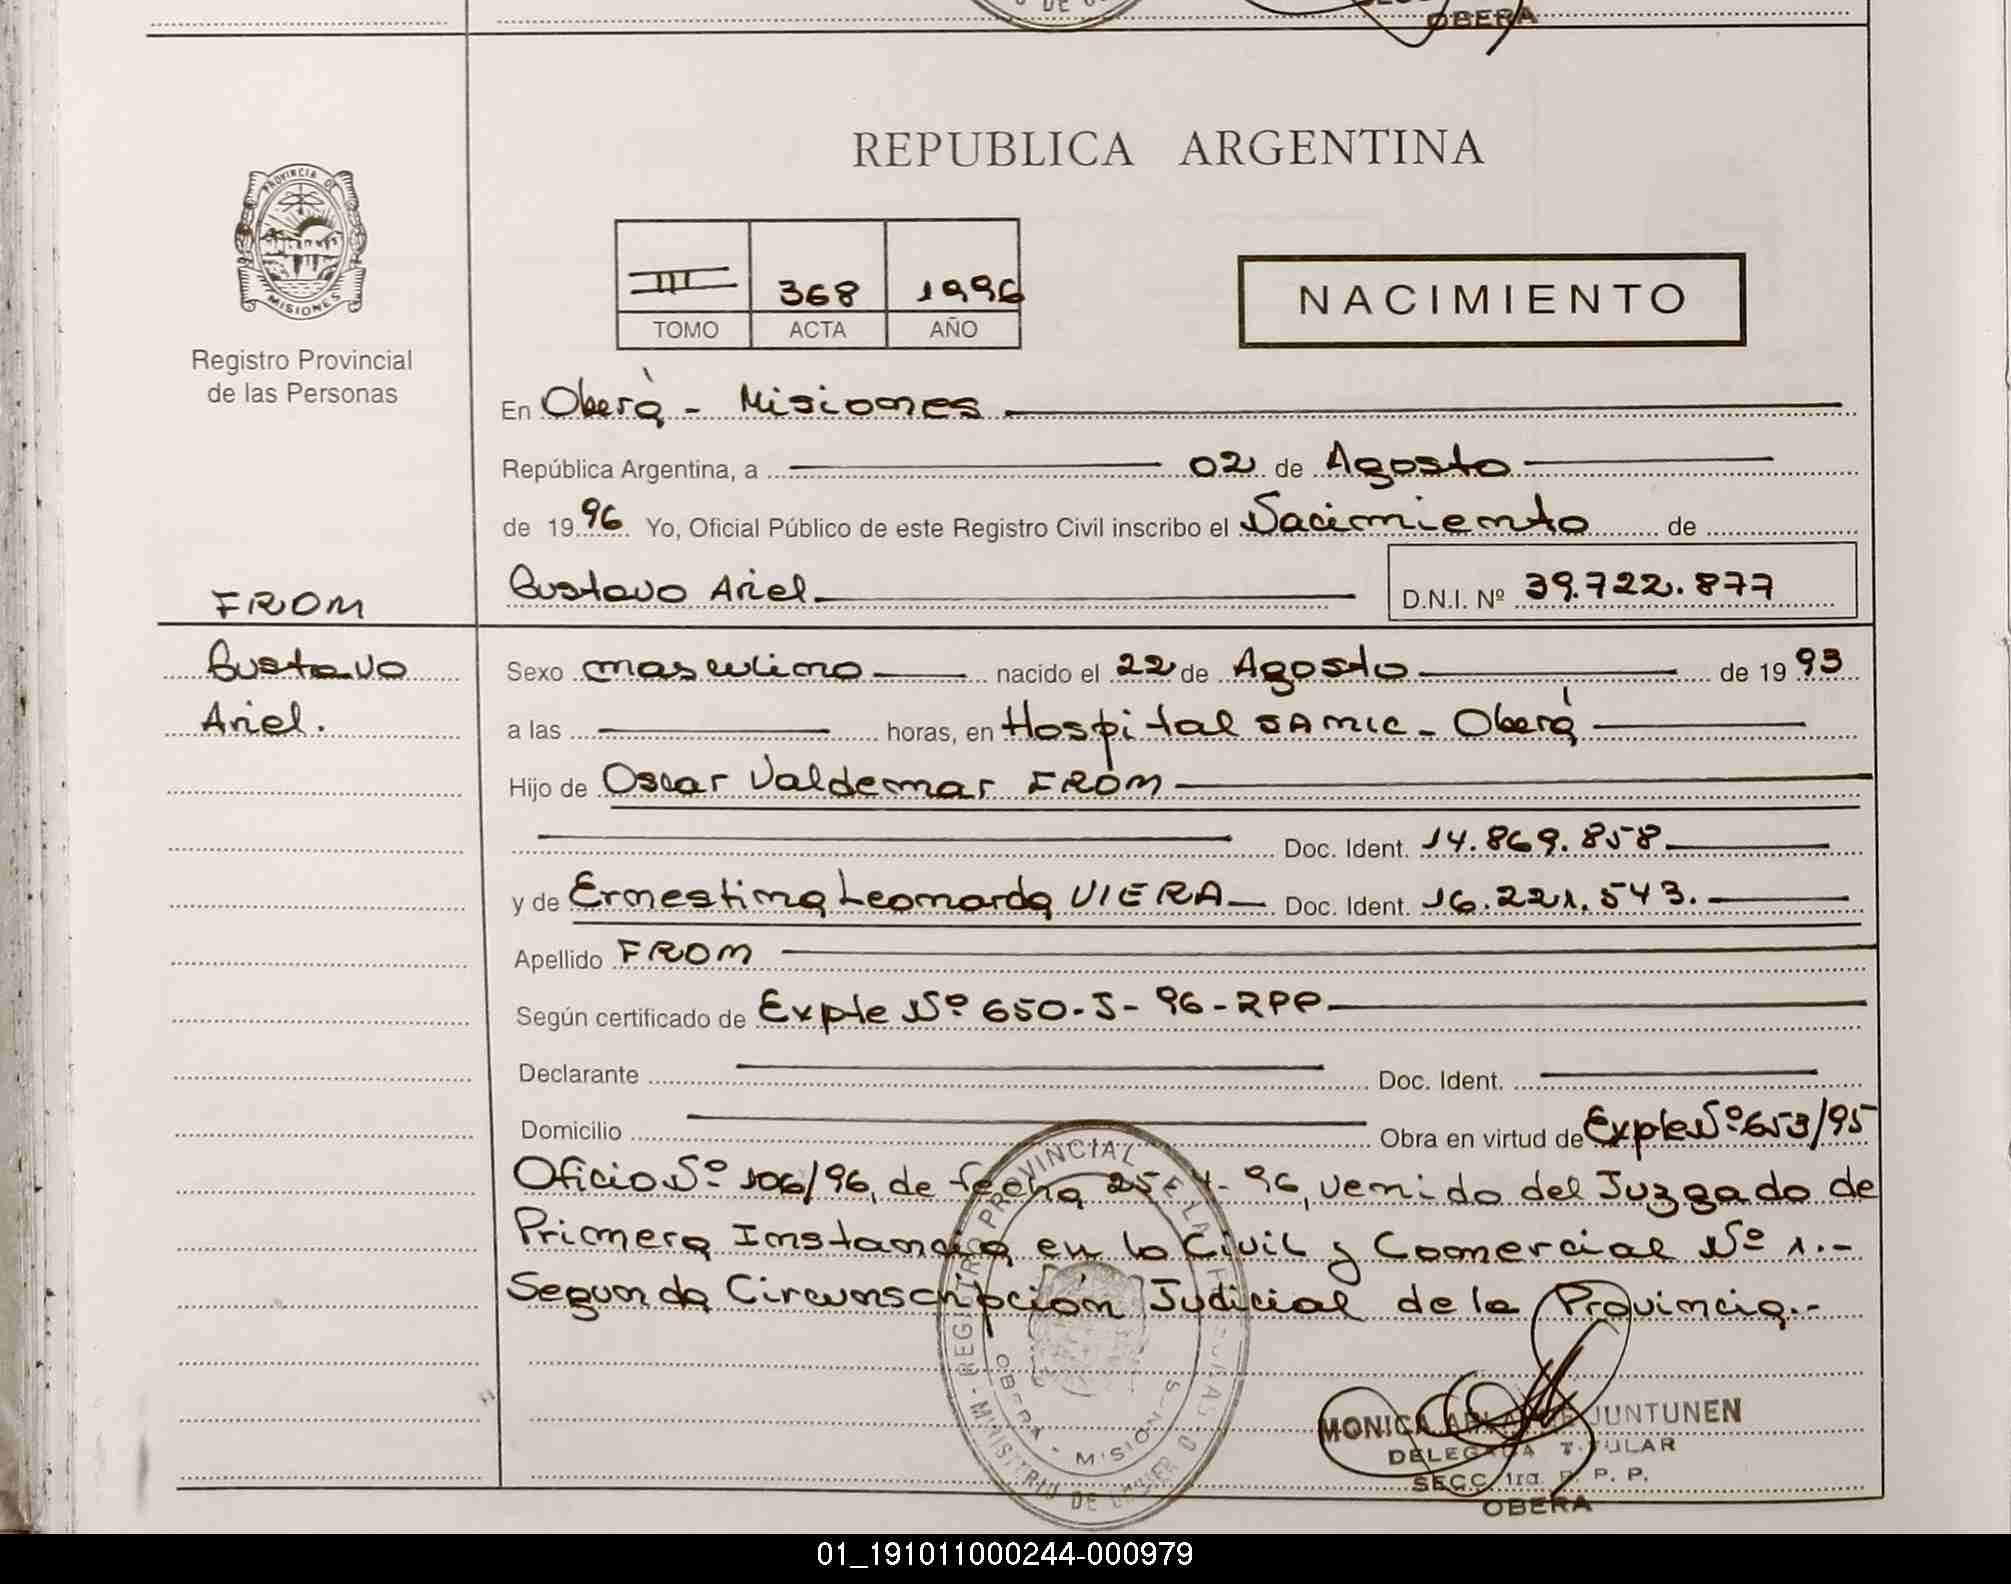 OBERA
PROVINCIA DE
MISIONES
Registro Provincial
de las Personas
REPUBLICA ARGENTINA
III 368 1996
TOMO ACTA AÑO
NACIMIENTO
En Oberá - Misiones
República Argentina, a 02 de Agosto
de 1996 Yo, Oficial Público de este Registro Civil inscribo el Nacimiento de
Gustavo Ariel D.N.I. Nº 39.722.877
FROM
Gustavo
Ariel.
Sexo masculino nacido el 22 de Agosto de 1993
a las horas, en Hospital SAMIC - Oberá
Hijo de Oscar Valdemar FROM
Doc. Ident. 14.869.858
y de Ernestina Leonarda VIERA Doc. Ident. 16.221.543.
Apellido FROM
Según certificado de Expte Nº 650-J-96-RPP
Declarante Doc. Ident.
Domicilio Obra en virtud de Expte Nº 653/95
Oficio Nº 106/96, de fecha 25-4-96, venido del Juzgado de
Primera Instancia en lo Civil y Comercial Nº 1.-
Segunda Circunscripción Judicial de la Provincia.-
REGISTRO PROVINCIAL DE LAS PERSONAS
OBERA - MISIONES
MINISTERIO DE GOBIERNO
MONICA JUNTUNEN
DELEGADA TITULAR
SECC. 1ra. R. P. P.
OBERA
01_191011000244-000979